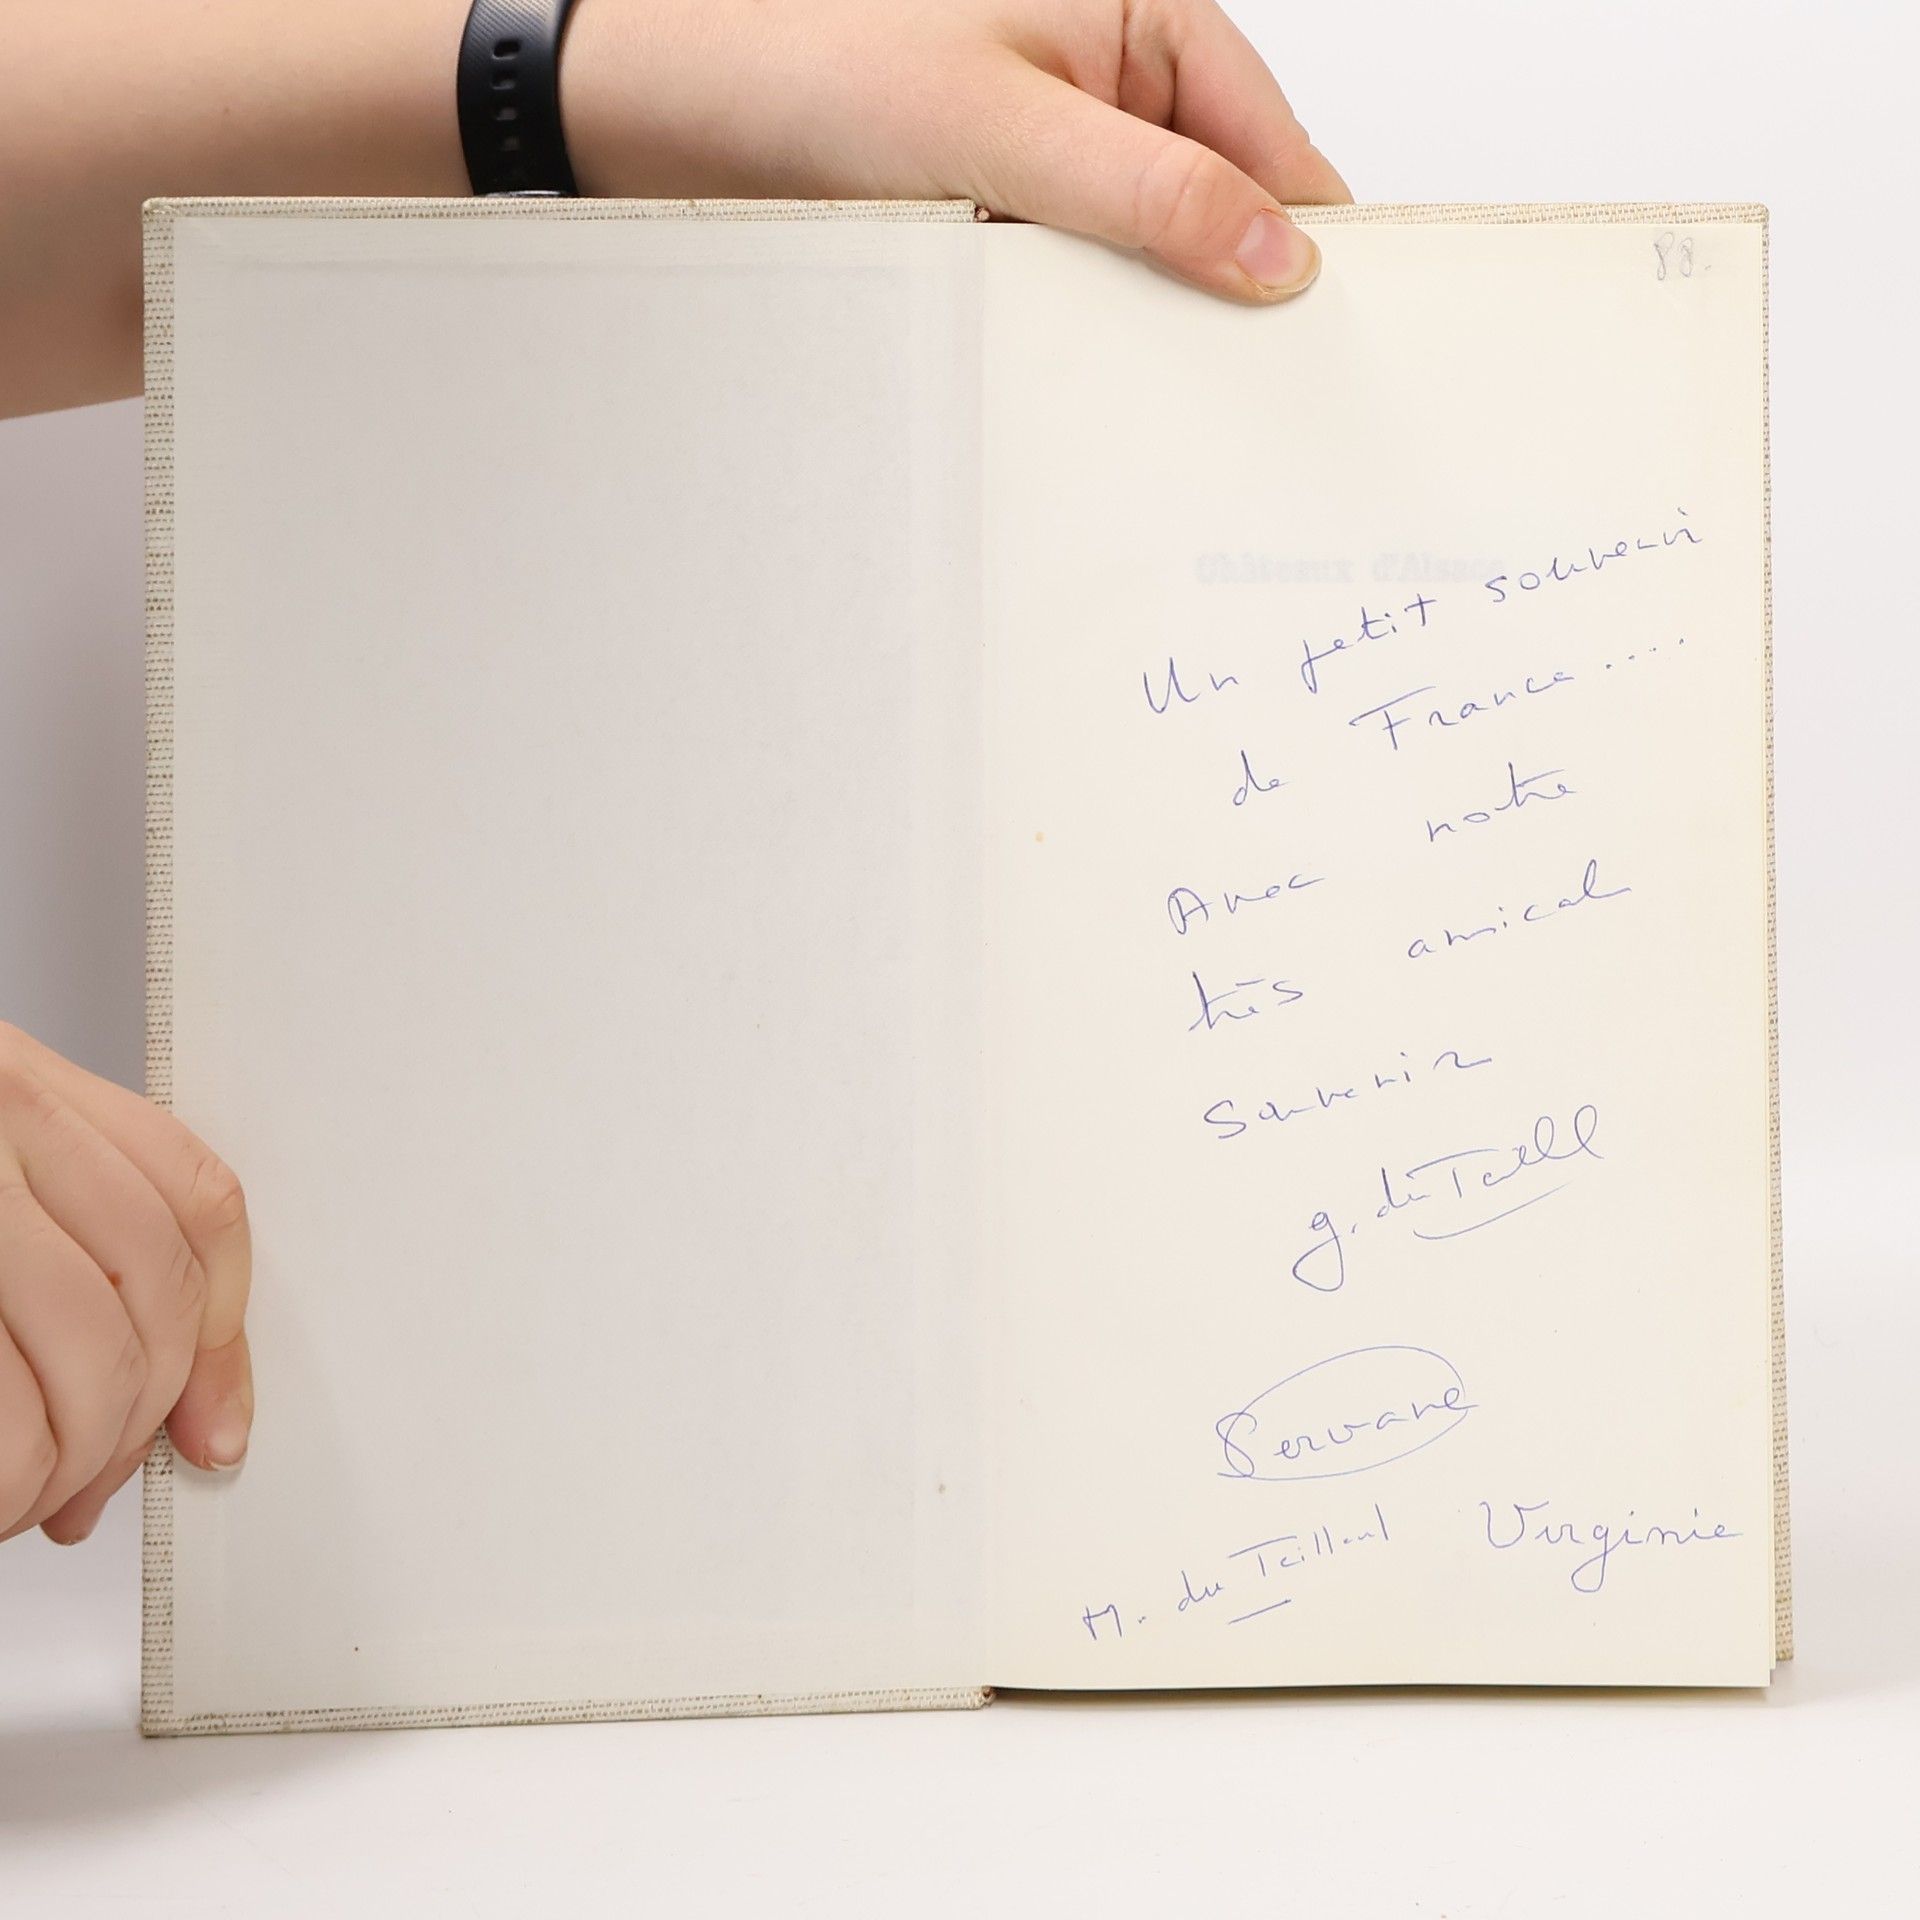 88.
Châteaux d'Alsace
Un petit souvenir
de France....
Avec notre
très amical
souvenir
g. du
Pervane
M. du Virginie